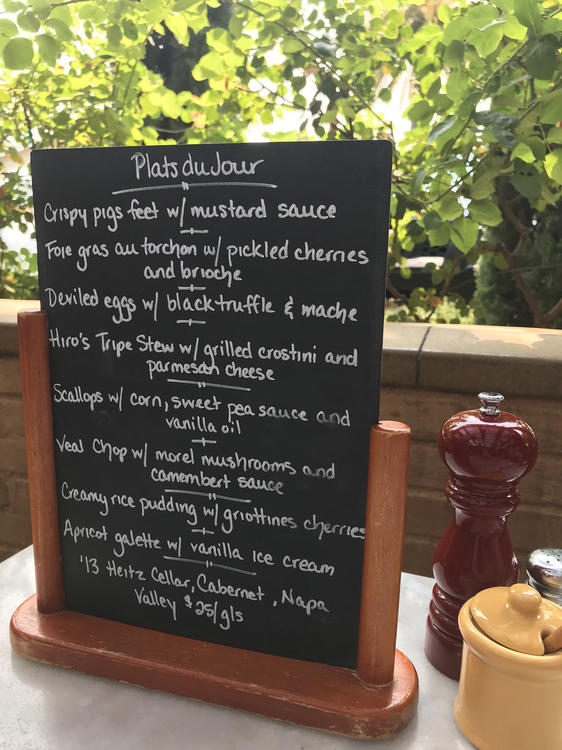 Plats du Jour
Crispy pigs feet w/ mustard sauce
Foie gras au torchon w/ pickled cherries
and brioche
Deviled eggs w/ black truffle & mache
Hiro's Tripe Stew w/ grilled crostini and
parmesan cheese
Scallops w/ corn, sweet pea sauce and
vanilla oil
Veal Chop w/ morel mushrooms and
camembert sauce
Creamy rice pudding w/ griottines cherries
Apricot galette w/ vanilla ice cream
'13 Heitz Cellar, Cabernet, Napa
Valley $25/gls